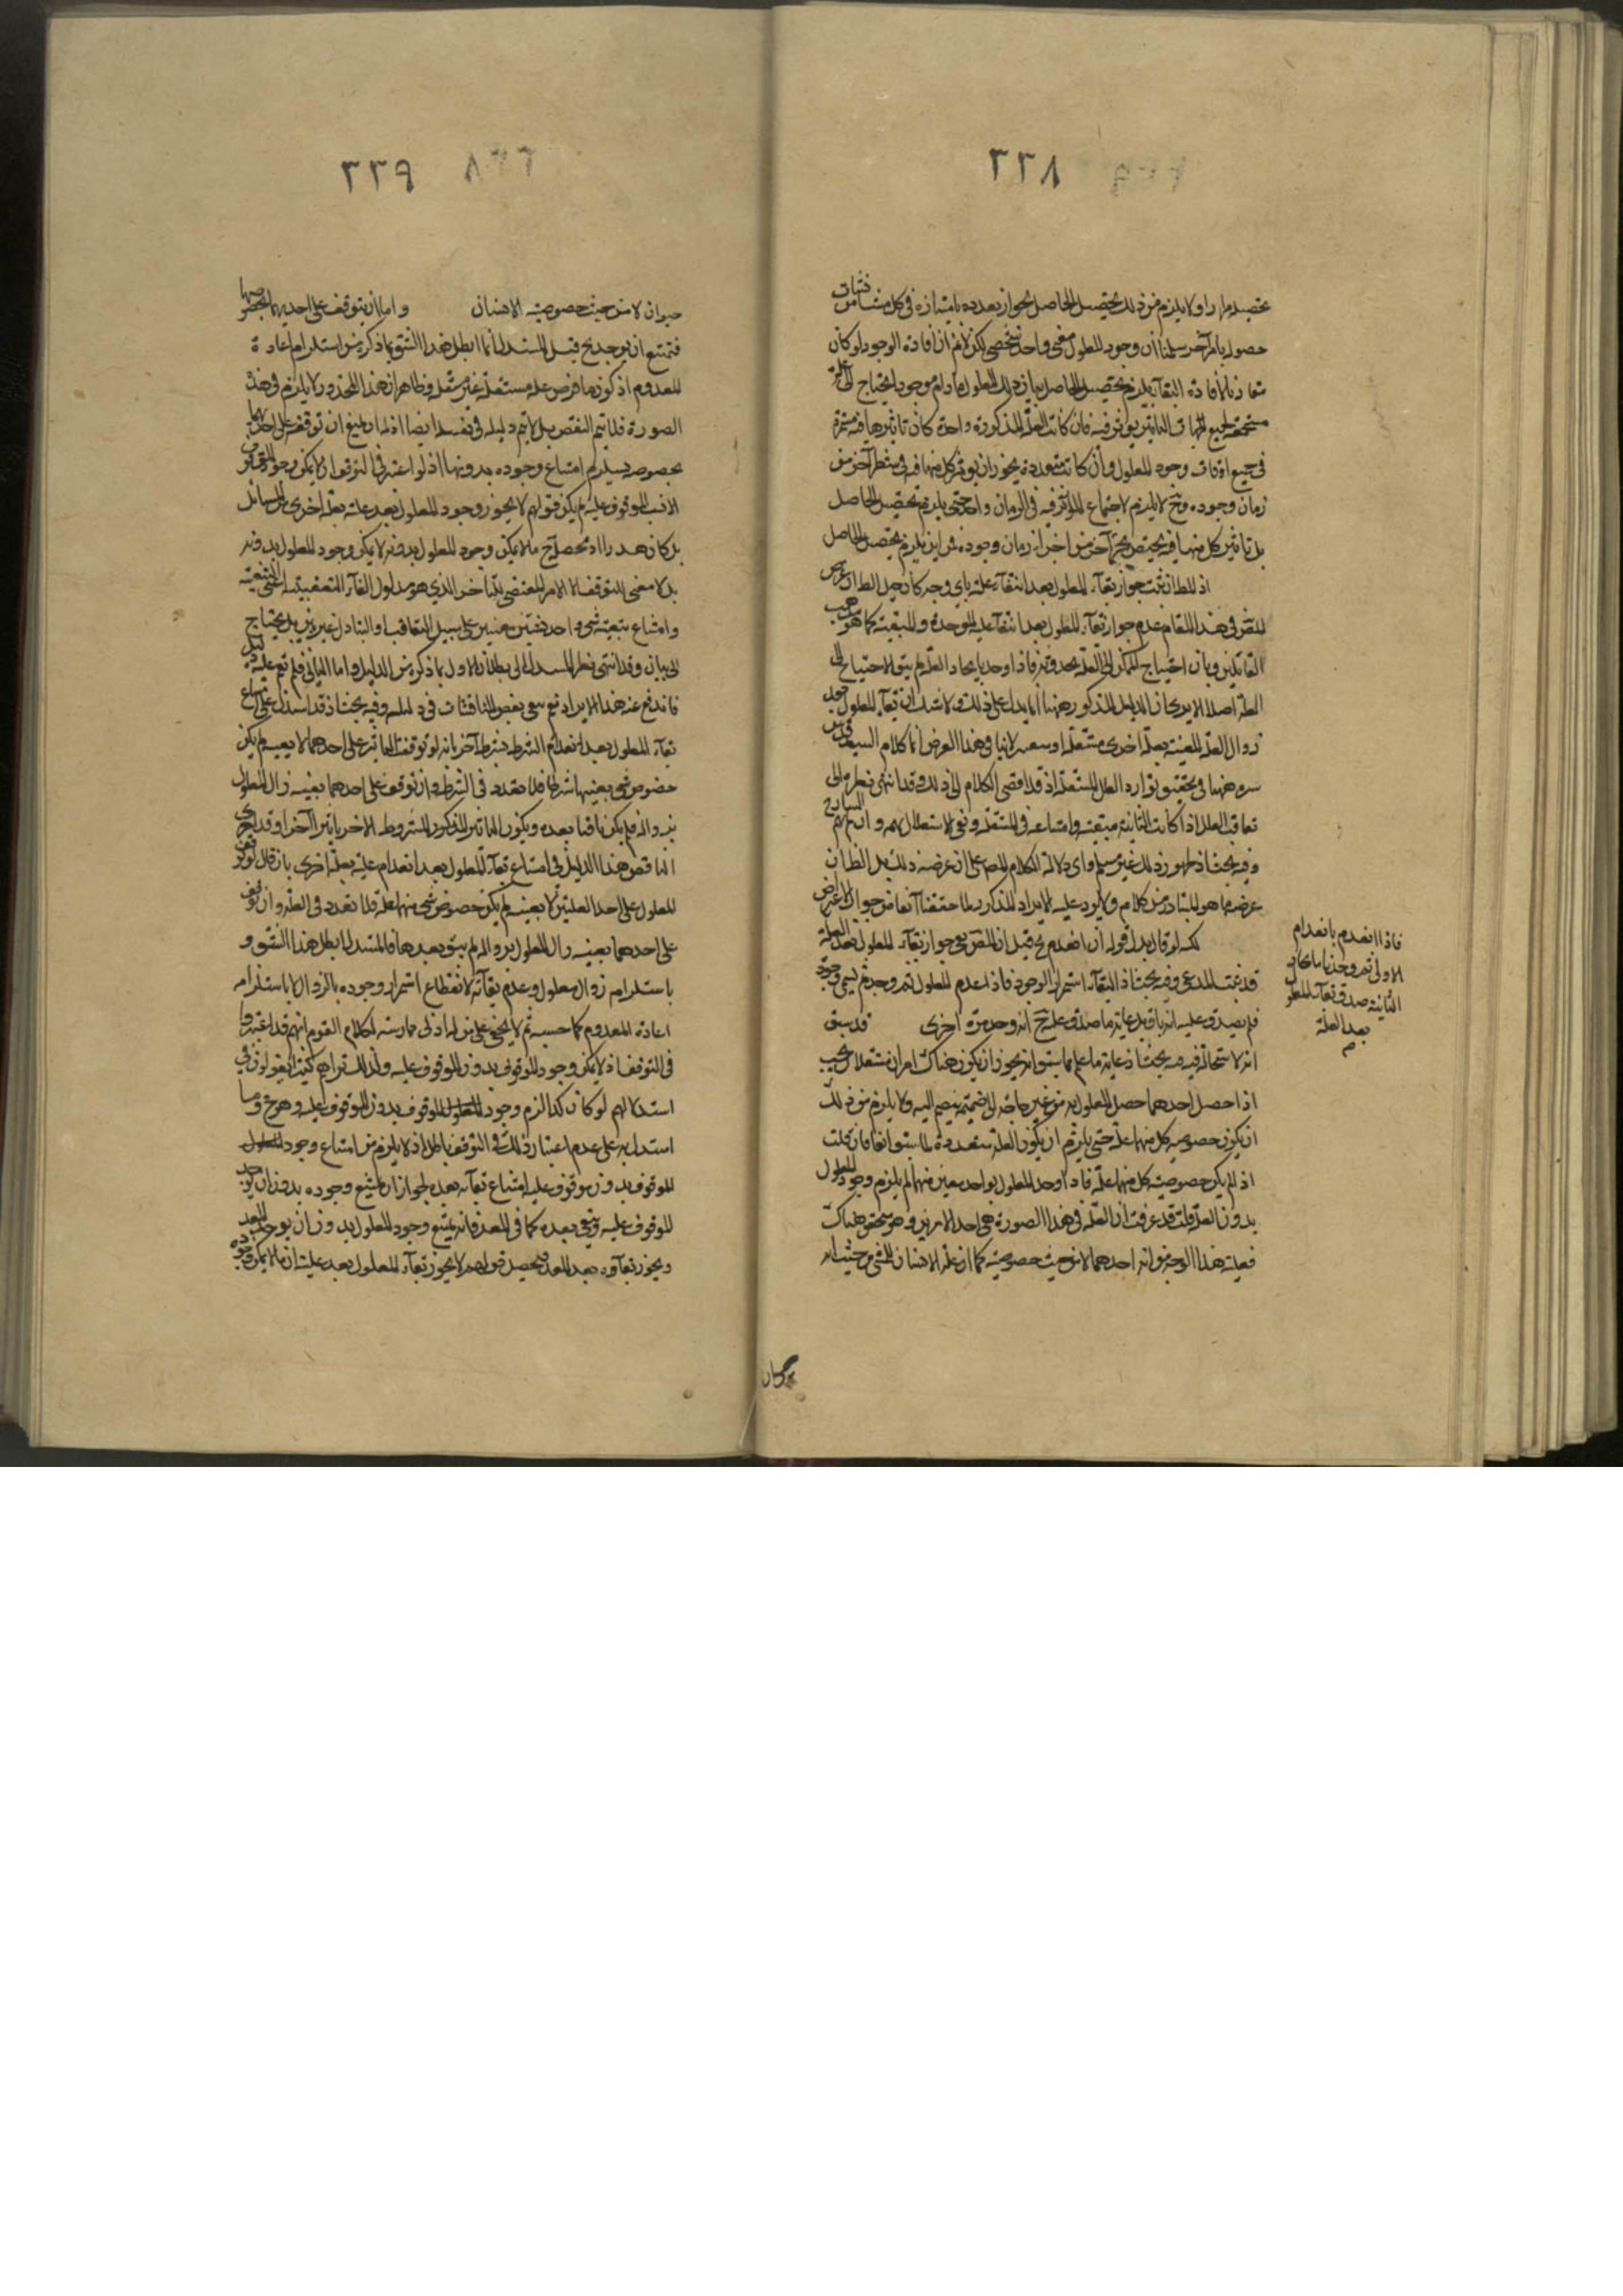 ٢٢٨
تحصيله مرارا ولا يلزم من ذلك تحصيل الحاصل لجواز تعدده بامتيازه في كل
حصول بامر آخر سلمنا ان وجود المعلول معنى واحد شخصي لكن لانم ان افادة الوجود لو كان
البقاء يلزم تحصيل الحاصل بيان ذلك ان المعلول ما دام موجودا يحتاج الى علة
مستجمعة لجميع الجهات التاثير يؤثر فيه فان كانت العلة المذكورة واحدة كان تاثيرها فيه مستمرة
في جميع اوقات وجود المعلول وان كانت متعددة يجوز ان يؤثر كل منها فيه في شطر آخر من
زمان وجوده وح لا يلزم لاجتماع المؤثر فيه في الزمان واحد حتى يلزم تحصيل الحاصل
بل تاثير كل منها فيه يختص بجزء آخر من اجزاء زمان وجوده فمن اين يلزم تحصيل الحاصل
اذ المط ان ثبت جواز بقاء المعلول بعد انتفاء علته باي وجه كان
المص في هذا المقام عدم جواز بقاء المعلول بعد انتفاء علته الموجدة والمبقية كما هو مذهب
القائلين وبان احتياج الممكن الى العلة بحدوثه فاذا وجد بايجاد العلة لم يبق الاحتياج الى
العلة اصلا الا يرى ان الدليل المذكور ههنا انما يدل على ذلك ولا شك ان بقاء المعلول بعد
زوال العلة المعينة بعلة اخرى مستقلة او لا ينافي هذا الغرض انما كلام السيد قدس
سره ههنا في تحقيق توارد العلل المستقلة اذ قد افضى الكلام الى ذلك وقد انتهى نظره الى
تعاقب العلل اذا كانت الثانية مبقية وامتناعه في المستقلة
وفيه بحث اذ ظهور ذلك غير مسلم واي دلالة لكلام المص على ان غرضه ذلك بل الظ ان
غرضه ما هو المتبادر من كلامه ولا يرد عليه الايراد المذكور لما حققنا آنفا من جواز
لكنه لو قال بدل قوله ان انعدم ح قيل ان المص يعي جواز بقاء المعلول بعد العلة
قد ثبت المدعى وفيه بحث اذ البقاء استمرار الوجود فاذا عدم المعلول ثم وجد لم يسم وجوده
فلم يصدق عليه انه باق بل غاية ما صدق عليه ح انه وجد مرة اخرى قد سبق
انه لا استحالة فيه فيه بحث اذ غاية ما علم مما سبق انه يجوز ان يكون هناك امران مستقلان بحيث
اذا حصل احدهما حصل المعلول به من غير حاجة الى ضميمة ينضم اليه ولا يلزم من ذلك
ان يكون خصوصية كل منهما علة حتى يلزم ان يكون العلة متعددة لما سبق آنفا فان قلت
اذا لم يكن خصوصية كل منهما علة فاذا وجد المعلول بواحد معين منهما لم يلزم وجود المعلول
بدون العلة قلت قد عرفت ان العلة في هذا الصورة هي احد الامرين وهو متحقق هناك
فعلية هذا الوجه من انه احدهما لا من حيث خصوصيته كما ان علة الانسان للمشي من حيث انه
فاذا انعدم بانعدام
الاولى ثم وجد بايجاد
الثانية صدق بقاء المعلول
بعد العلة
م
٢٢٩
حيوان لا من حيث خصوصيته الانسان واما ان يتوقف على احديهما بخصوصها
فيمتنع ان يوجد بح قيل المستدل انما ابطل هذا الشق بما ذكر من استلزام اعادة
المعدوم اذ كون ما فرض علة مستقلة غير مستقل وظاهر ان هذا المحذور لا يلزم في هذه
الصورة فلا يتم النقض بل لا يتم دليله في نفسه ايضا اذ له ان يمنع ان توقفه على احديهما
بخصوصه يستلزم امتناع وجوده بدونها اذ لو اعتبر في التوقف ان لا يمكن وجود الموقوف
الا بالموقوف عليه لم يكن قولهم لا يجوز وجود المعلول بعد علته بعلة اخرى من المسائل
بل كان هدرا اذ محصله ح ما لا يمكن وجود المعلول بدونه لا يمكن وجود المعلول بدونه
بل لا معنى للتوقف الا الامر المقتضي للتاخر الذي هو مدلول الفاء التعقيبية
وامتناع تبعية شيء واحد لشيئين معينين على سبيل التعاقب او التبادل غير بين بل يحتاج
الى بيان وقد انتهى نظر المستدل الى بطلان الاول بما ذكر من الدليل واما الثاني فلم يقم عليه دليل
فاندفع عنه هذا الايراد نعم بقي بعض المناقشات في دليله وفيه بحث اذ قد استدل على امتناع
بقاء المعلول بعد انعدام الشرط بشرط آخر بانه لو توقف التاثير على احدهما لا بعينه لم يكن
خصوص شيء بعينها شرطا فلا تعدد في الشرط وان توقف على احدهما بعينه زال المعلول
بزواله فلم يكن باقيا بعده ويكون التاثير المذكور المشروط بالآخر تاثيرا آخر وقد اجرى
الناقض هذا الدليل في امتناع بقاء المعلول بعد انعدام علته بعلة اخرى بان قال لو توقف
المعلول على احد العلتين لا بعينه لم يكن خصوص شيء منهما علة فلا تعدد في العلة وان توقف
على احدهما بعينه زال المعلول بزواله لم يبق بعدها فالمستدل ابطل هذا الشق و
باستلزامه زوال معلول وعدم بقائه لانقطاع استمرار وجوده بالزوال لا باستلزامه
اعادة المعدوم كما حسبه ثم لا يخفى على من له ادنى ممارسته لكلام القوم انهم قد اعتبروا
في التوقف اذ لا يمكن وجود الموقوف بدون الموقوف عليه ولذلك تراهم كثيرا يقولون في
استدلالهم لو كان كذا لزم وجود الموقوف بدون الموقوف عليه وهو مح وما
استدل به على عدم اعتبار ذلك في التوقف باطل اذ لا يلزم من امتناع وجود المعلول
الموقوف بدون موقوف عليه امتناع بقائه بعده لجواز ان يمتنع وجوده بدون ان يوجد
الموقوف عليه ويبقى بعده كما في المعد فانه يمتنع وجود المعلول بدون ان يوجد المعد
ويجوز بقاؤه بعد المعد فمحصل قولهم لا يجوز بقاء المعلول بعد علته ان ما لا يمكن وجوده